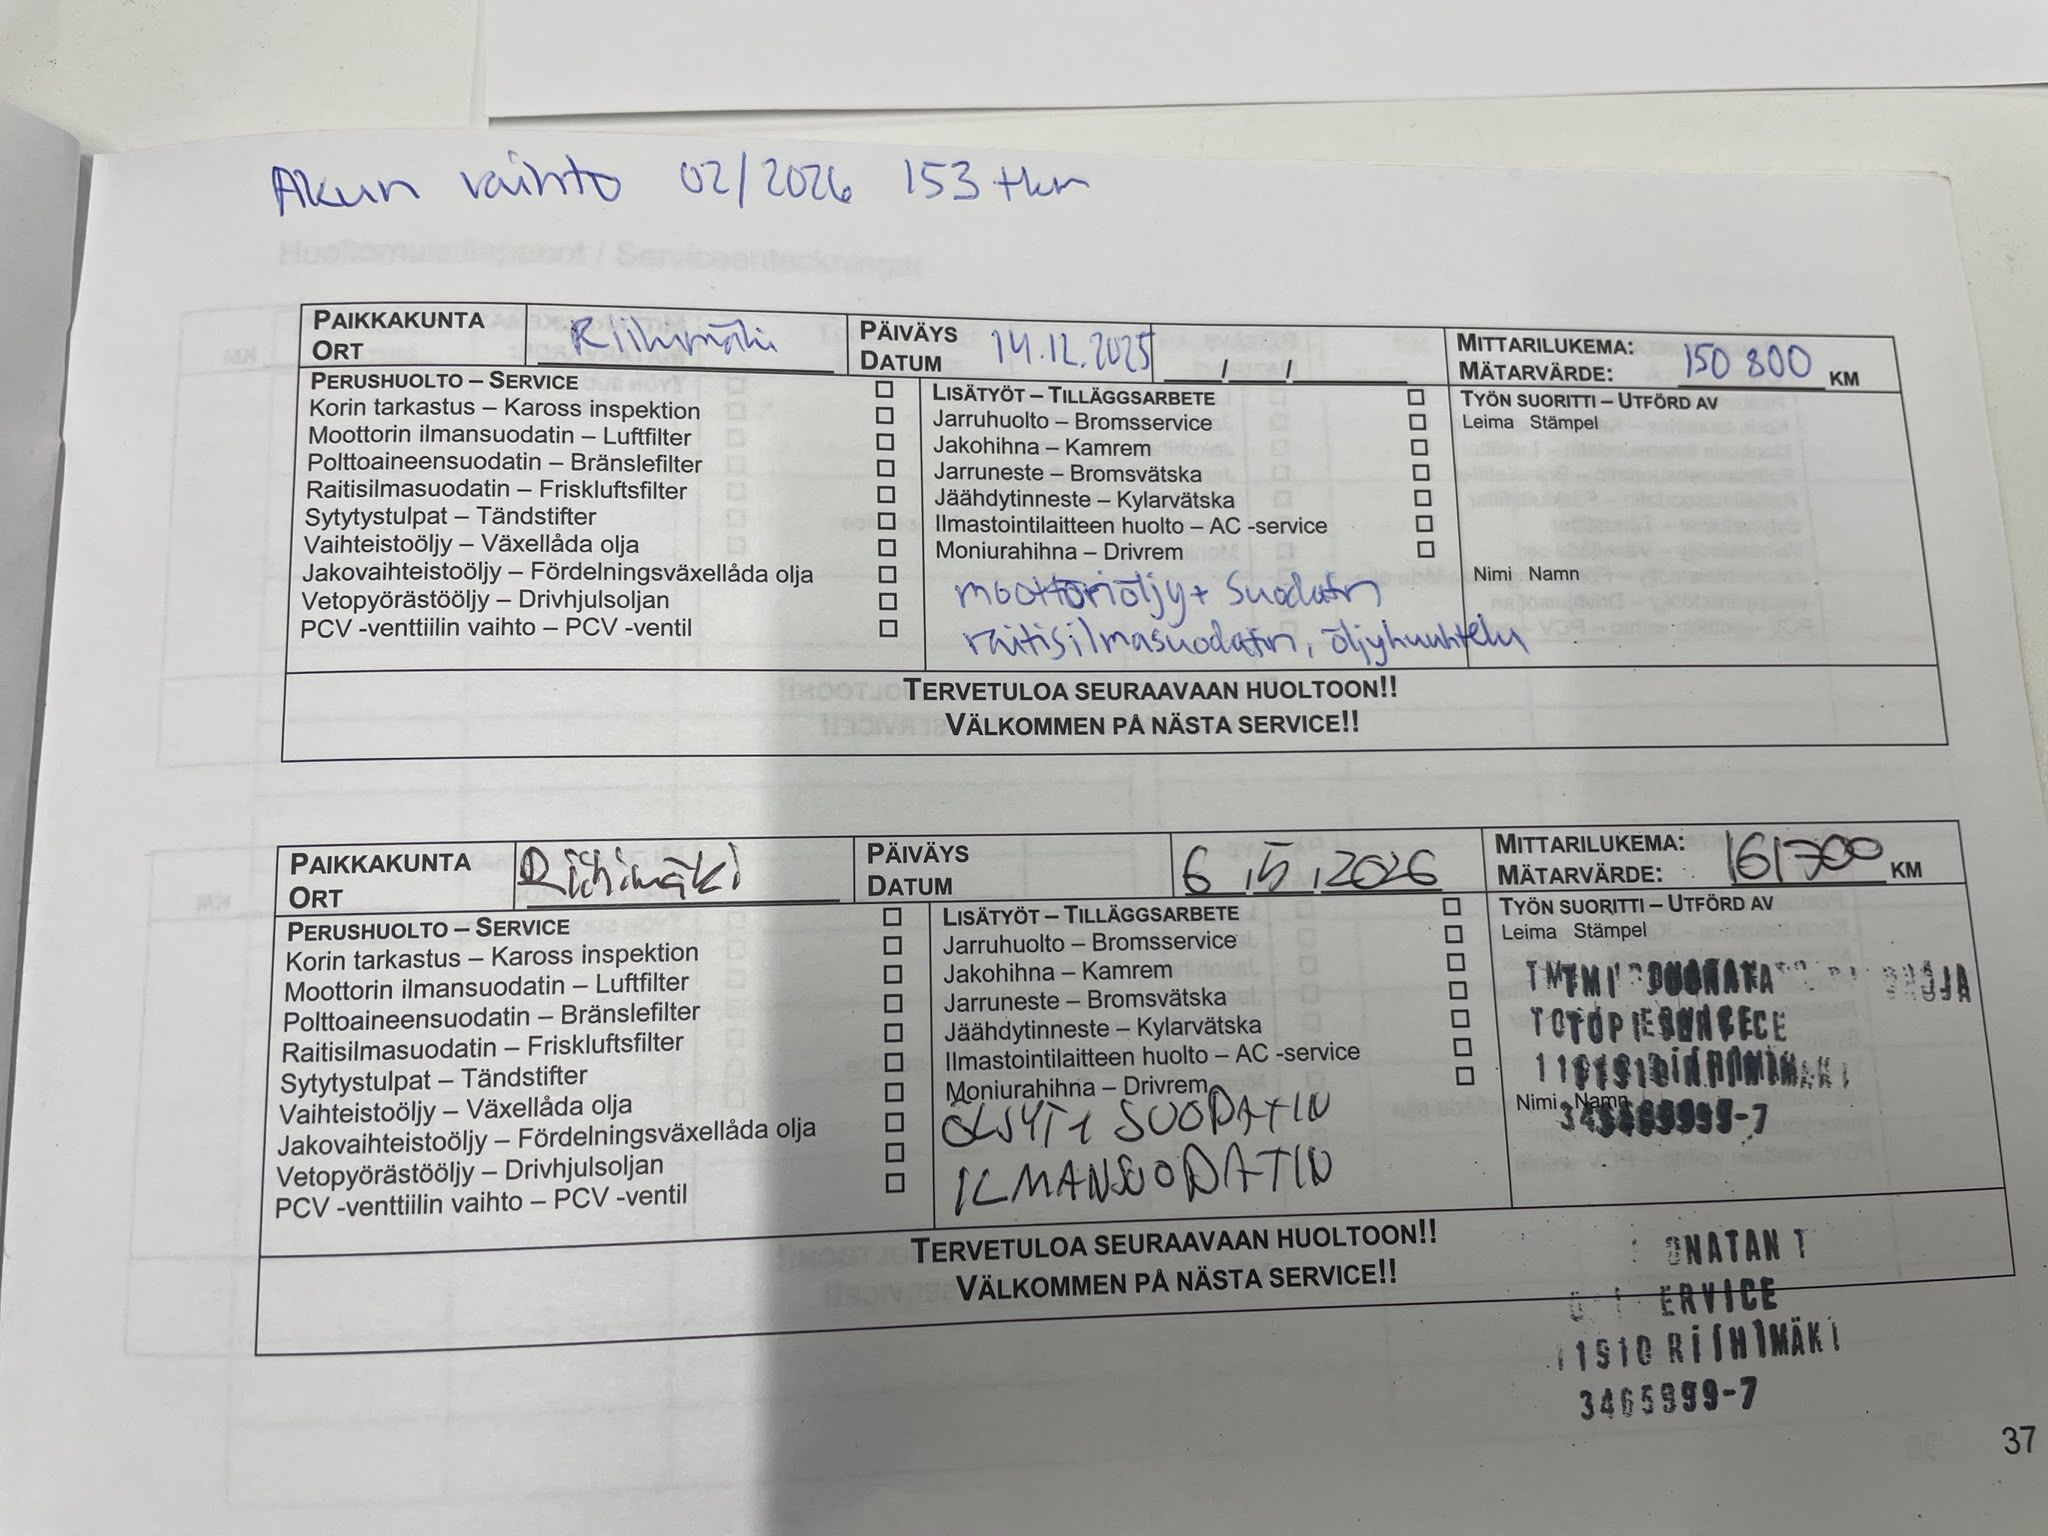 Akun vaihto 02/2026 153 tkm
PAIKKAKUNTA Riihimäki PÄIVÄYS 14.12.2025 / / MITTARILUKEMA: 150 800 KM
ORT DATUM MÄTARVÄRDE:
PERUSHUOLTO – SERVICE
Korin tarkastus – Kaross inspektion
Moottorin ilmansuodatin – Luftfilter
Polttoaineensuodatin – Bränslefilter
Raitisilmasuodatin – Friskluftsfilter
Sytytystulpat – Tändstifter
Vaihteistoöljy – Växellåda olja
Jakovaihteistoöljy – Fördelningsväxellåda olja
Vetopyörästööljy – Drivhjulsoljan
PCV -venttiilin vaihto – PCV -ventil
LISÄTYÖT – TILLÄGGSARBETE
Jarruhuolto – Bromsservice
Jakohihna – Kamrem
Jarruneste – Bromsvätska
Jäähdytinneste – Kylarvätska
Ilmastointilaitteen huolto – AC -service
Moniurahihna – Drivrem
moottoriöljy + suodatin
raitisilmasuodatin, öljyhuuhtelu
TYÖN SUORITTI – UTFÖRD AV
Leima Stämpel
Nimi Namn
TERVETULOA SEURAAVAAN HUOLTOON!!
VÄLKOMMEN PÅ NÄSTA SERVICE!!
PAIKKAKUNTA Riihimäki PÄIVÄYS 6 .5 .2026 MITTARILUKEMA: 161700 KM
ORT DATUM MÄTARVÄRDE:
PERUSHUOLTO – SERVICE
Korin tarkastus – Kaross inspektion
Moottorin ilmansuodatin – Luftfilter
Polttoaineensuodatin – Bränslefilter
Raitisilmasuodatin – Friskluftsfilter
Sytytystulpat – Tändstifter
Vaihteistoöljy – Växellåda olja
Jakovaihteistoöljy – Fördelningsväxellåda olja
Vetopyörästööljy – Drivhjulsoljan
PCV -venttiilin vaihto – PCV -ventil
LISÄTYÖT – TILLÄGGSARBETE
Jarruhuolto – Bromsservice
Jakohihna – Kamrem
Jarruneste – Bromsvätska
Jäähdytinneste – Kylarvätska
Ilmastointilaitteen huolto – AC -service
Moniurahihna – Drivrem
ÖLJYT + SUODATIN
ILMANSUODATIN
TYÖN SUORITTI – UTFÖRD AV
Leima Stämpel
Nimi Namn
TERVETULOA SEURAAVAAN HUOLTOON!!
VÄLKOMMEN PÅ NÄSTA SERVICE!!
ONATAN T
ERVICE
11910 RIIHIMÄKI
3465999-7
37